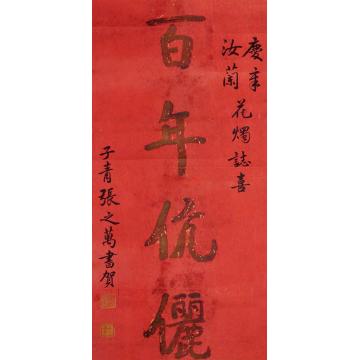 慶年
汝蘭 花燭誌喜
百年伉儷
子青張之萬書賀